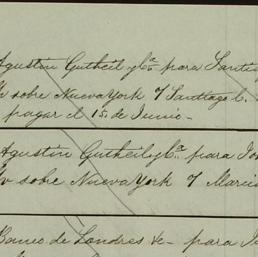 Agustin Gutheil y Ca para Santi
v sobre Nueva York 7 Santiago C.
pagar el 15 de Junio-
Agustin Gutheil y Ca. para Jo
v sobre Nueva York 7 Marci
Banco de Londres &- para J